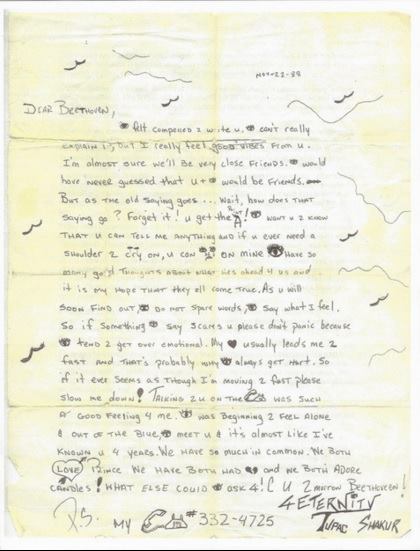 Nov-22-88
Dear Beethoven,
👁 felt compelled 2 write u. 👁 can't really
explain it, but I really feel good vibes from u.
I'm almost sure we'll be very close friends. 👁 would
have never guessed that u + 👁 would be friends.
But as the old saying goes... Wait, how does that
saying go? Forget it! u get the ! 👁 want u 2 know
that u can tell me anything and if u ever need a
shoulder 2 cry on, u can on mine 👁 have so
many good thoughts about what lies ahead 4 us and
it is my hope that they all come true. As u will
soon find out, 👁 do not spare words, 👁 say what I feel.
So if something 👁 say scares u please don't panic because
👁 tend 2 get over emotional. My ♥ usually leads me 2
fast and that's probably why 👁 always get hurt. So
if it ever seems as though I'm moving 2 fast please
slow me down! Talking 2 u on the ☎ was such
a good feeling 4 me. 👁 was beginning 2 feel alone
& out of the blue, 👁 meet u & it's almost like I've
known u 4 years. We have so much in common. We both
Love 12ince we have both had ♥ and we both adore
candles! What else could 👁 ask 4! C U 2 morrow Beethoven!
4 Eternity
Tupac Shakur
P.S. My ☎ # 332-4725